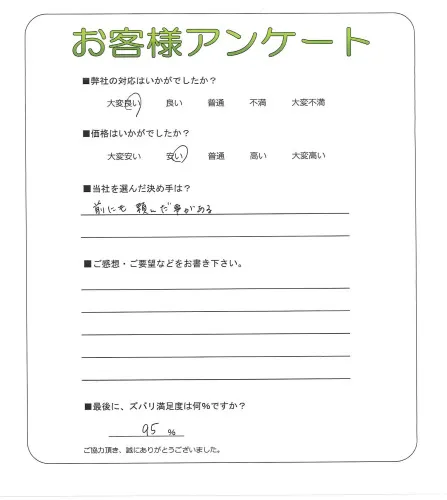 お客様アンケート
■弊社の対応はいかがでしたか?
大変良い 良い 普通 不満 大変不満
■価格はいかがでしたか?
大変安い 安い 普通 高い 大変高い
■当社を選んだ決め手は?
前にも頼んだ事がある
■ご感想・ご要望などをお書き下さい。
■最後に、ズバリ満足度は何%ですか?
95 %
ご協力頂き、誠にありがとうございました。